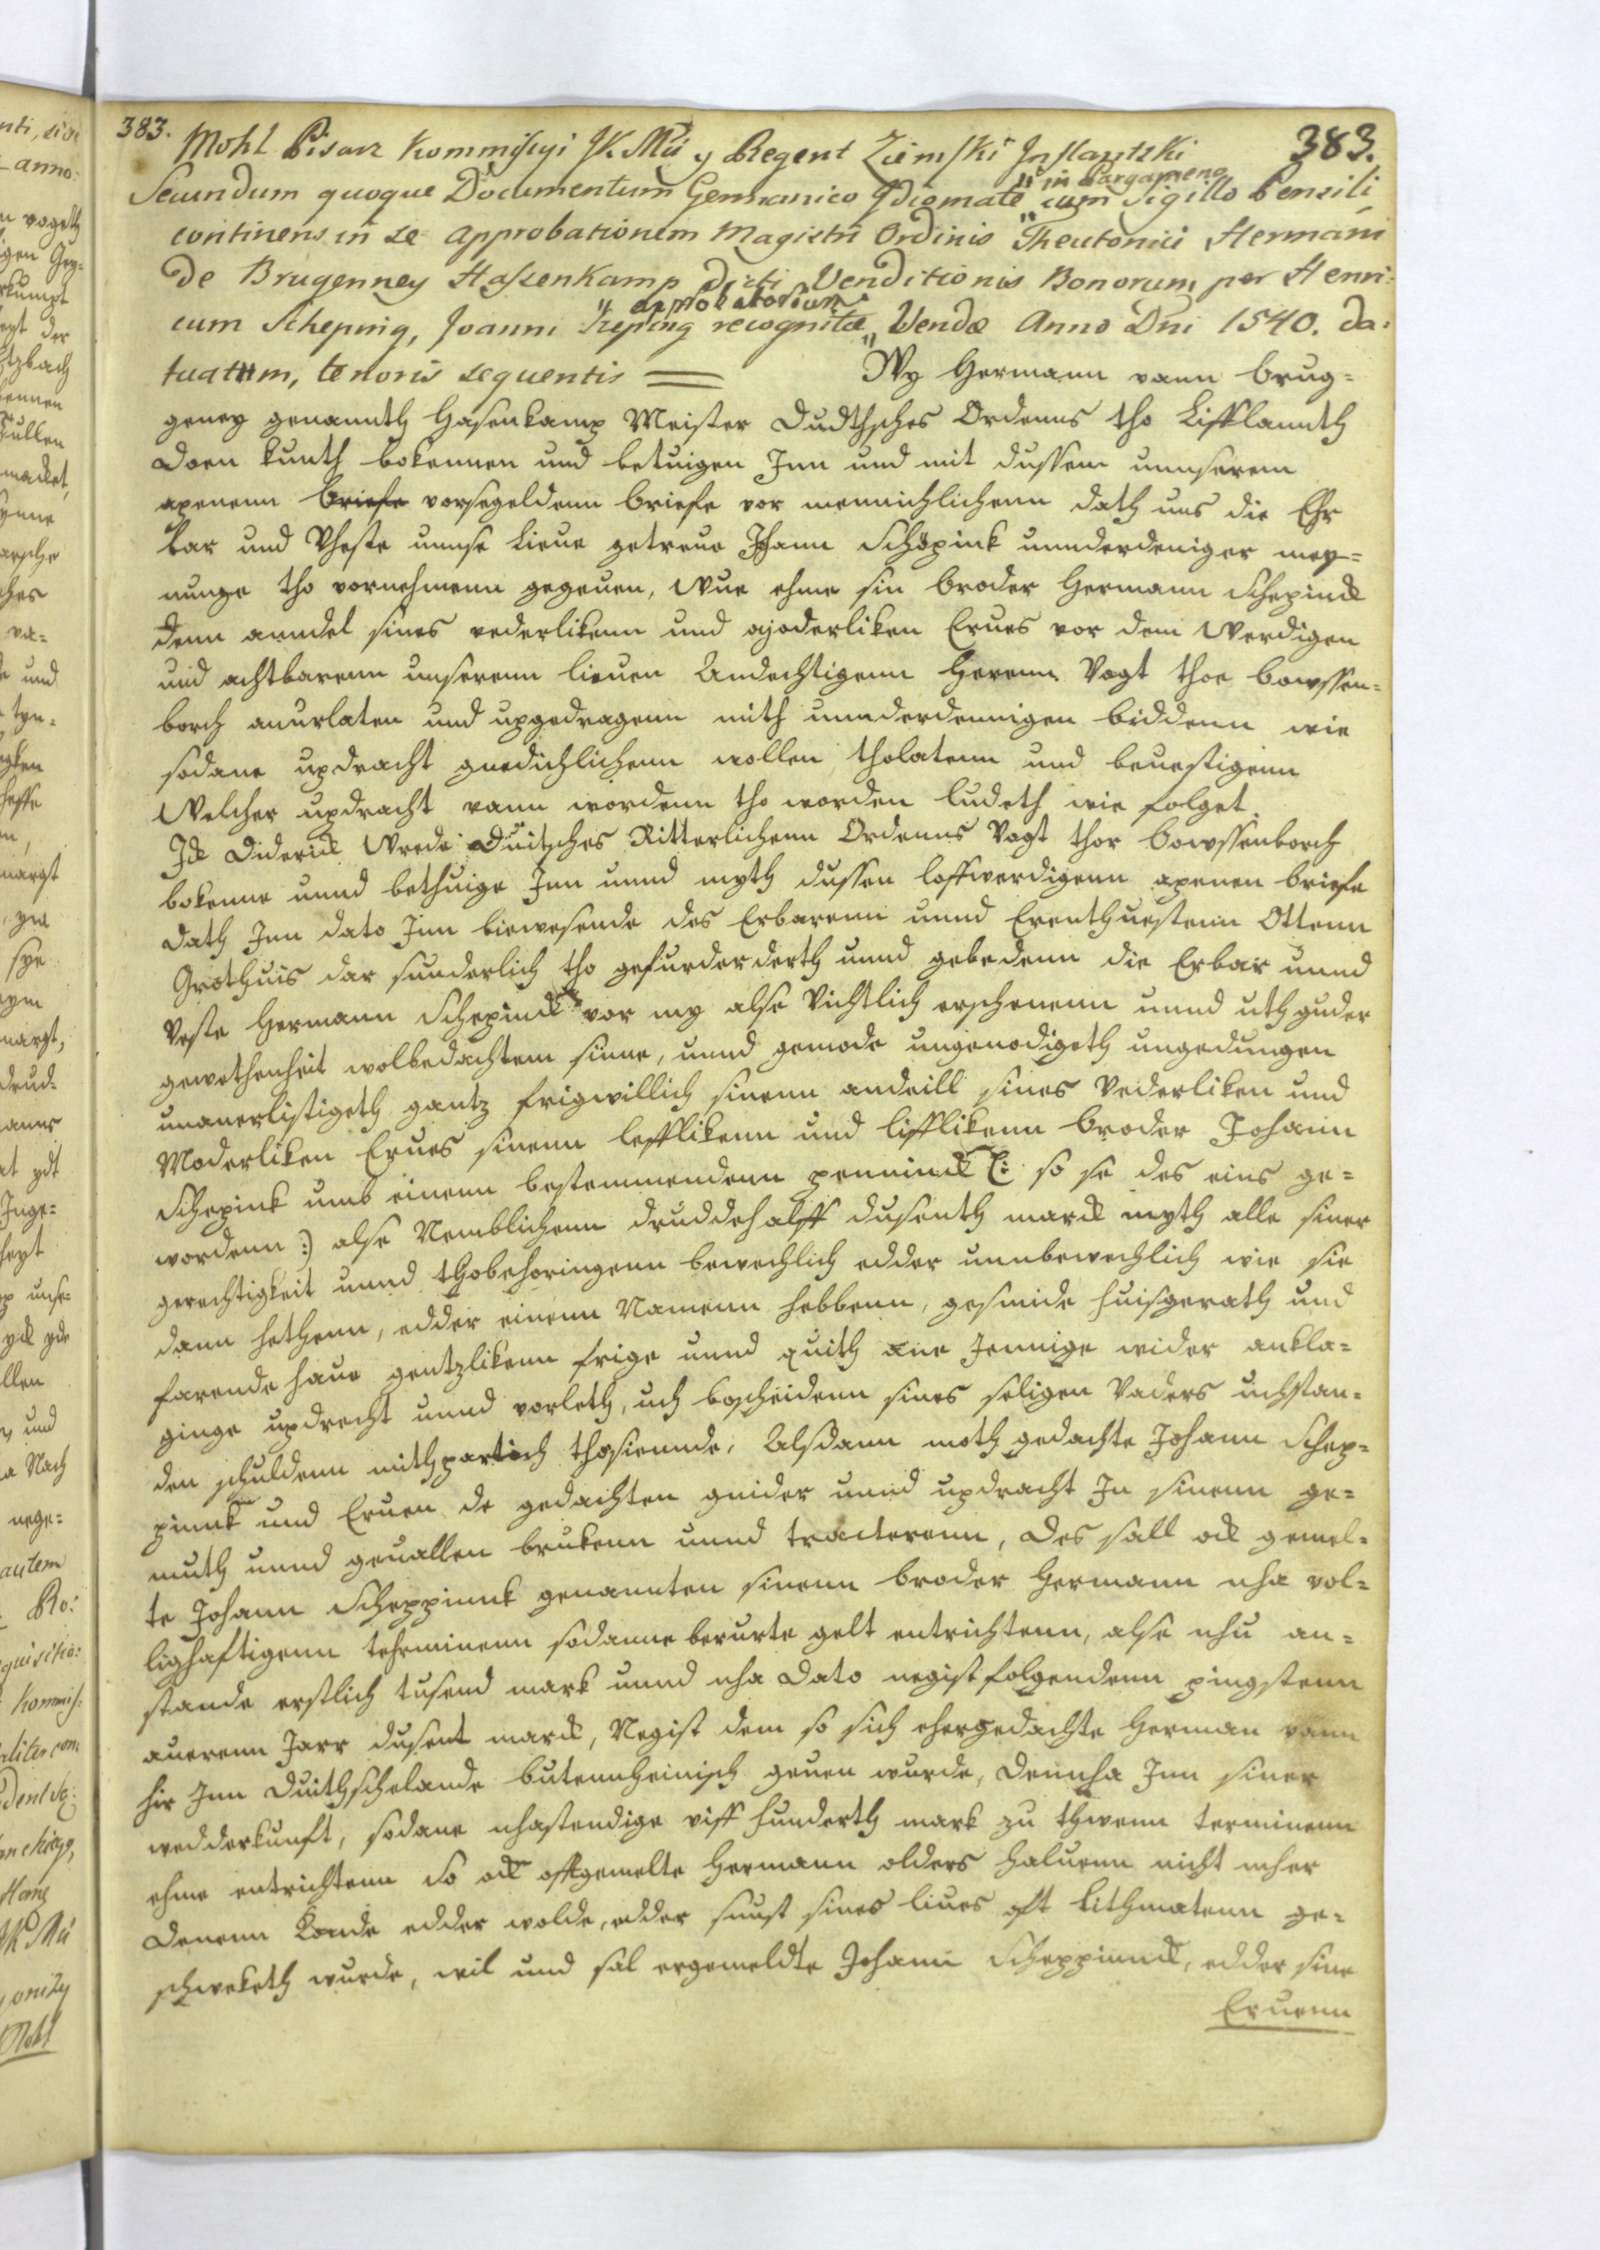 383. 383.
Mohl Pisarz Kommissyi JK Mci y Regent Ziemski Inflantzki
Secundum quoque Documentum Germanico Ydiomate " in Pargameno cum Sigillo Pensili,
continens in se Approbationem Magistri Ordinis Theutonici Hermani
de Brugenney Hassenkamp dicti Venditionis Bonorum, per Henri-
cum Scheping, Joanni Szeping recognitæ " approbatorium " Vendæ Anno Dni 1540. da-
tuatum, tenoris sequentis = Wy Hermann vann Brug-
geney genannth Hasenkamp Meister Dudthsches Ordenns tho Lifflannth
Doen kunth bokennen und betuigen Inn und mit dussem unnserem
apenenn briefe vorsegeldenn briefe vor mennichlichenn dath uns die Ehr
bar und Vheste unnse Lieue getreue Johann Schöpink unnderdeniger mey-
nunge tho vornehmenn gegeuen, Wue ehme sin broder Hermann Schepinck
denn anndel sines vederlikenn und moderliken Erues vor dem Werdigen
und achtbarenn unserenn lieuen Andechtigenn Herenn Vogt thor bowssen-
borch auurlaten und upgedragenn mith unnderdennigen biddenn wie
sodane updracht gnedichlichenn wollen tholatenn und beuestigenn
Welcher updracht vann wordenn tho worden ludeth wie folget.
Ick Diderick Wrede Duitsches Ritterlichenn Ordenns Vogt thor bowssenborch
bokenne unnd bethuige Inn unnd myth dussen loffwerdigenn apenen briefe
dath Inn dato Inn biewesende des Erbarenn unnd Erenthuestenn Ottenn
Grothuis dar sunderlich tho gefurderderth unnd gebedenn die Erbar unnd
Veste Hermann Schepinck vor my alse Richtlich erschenenn unnd uth guder
gewothenheit wolbedachtem sinne, unnd gemode ungenodigeth ungedungen
unauerlistigeth gantz frigwillich sinenn andeill sines Vederliken und
Moderliken Erues sinenn lefflikenn und lifflikenn broder Johann
Schepink umb einenn bestemmendenn penninck (: so se des eins ge-
wordenn :) alse Nemblichenn druddehalff dusenth marck myth alle siner
gerechtigkeit unnd thobehoringenn bewechlich edder unnbewechlich wie sie
dann hethenn, edder einenn Namenn hebbenn, gesmide huisgerath und
farende haue gentzlikenn frige unnd quith ane Jennige wider ankla-
ginge updrecht unnd vorleth, uth bescheidenn sines seligen Vaders uthstan-
den schuldenn mithpartich thosiennde, Alsdann moth gedachte Johann Schep-
pinnk und Eruen de gedachten guider unnd updracht In sinenn ge-
muth unnd geuallen brukenn unnd tracterenn, Des sall ock gemel-
te Johann Scheppinnk genannten sinenn broder Hermann nha vol-
lighaftigenn tehrminenn sodanne berurte gelt entrichtenn, alse nhu an-
stande erstlich tusend mark unnd nha Dato negistfolgendenn pingstenn
auerenn Jarr dusent marck, Negist dem so sich ehergedachte Herman vann
hir Inn Duithschelande butennheimisch geuen wurde, Dennha Inn siner
wedderkunft, sodane nhastendige viff hunderth mark zu thwenn terminenn
ehme entrichtenn So ock offtgemelte Hermann olders haluenn nicht meher
Denenn konde edder wolde, edder sunst sines liues oft lithmatenn ge-
schweketh wurde, wil und sal ergemeldte Johann Scheppinnck, edder sine
Eruenn